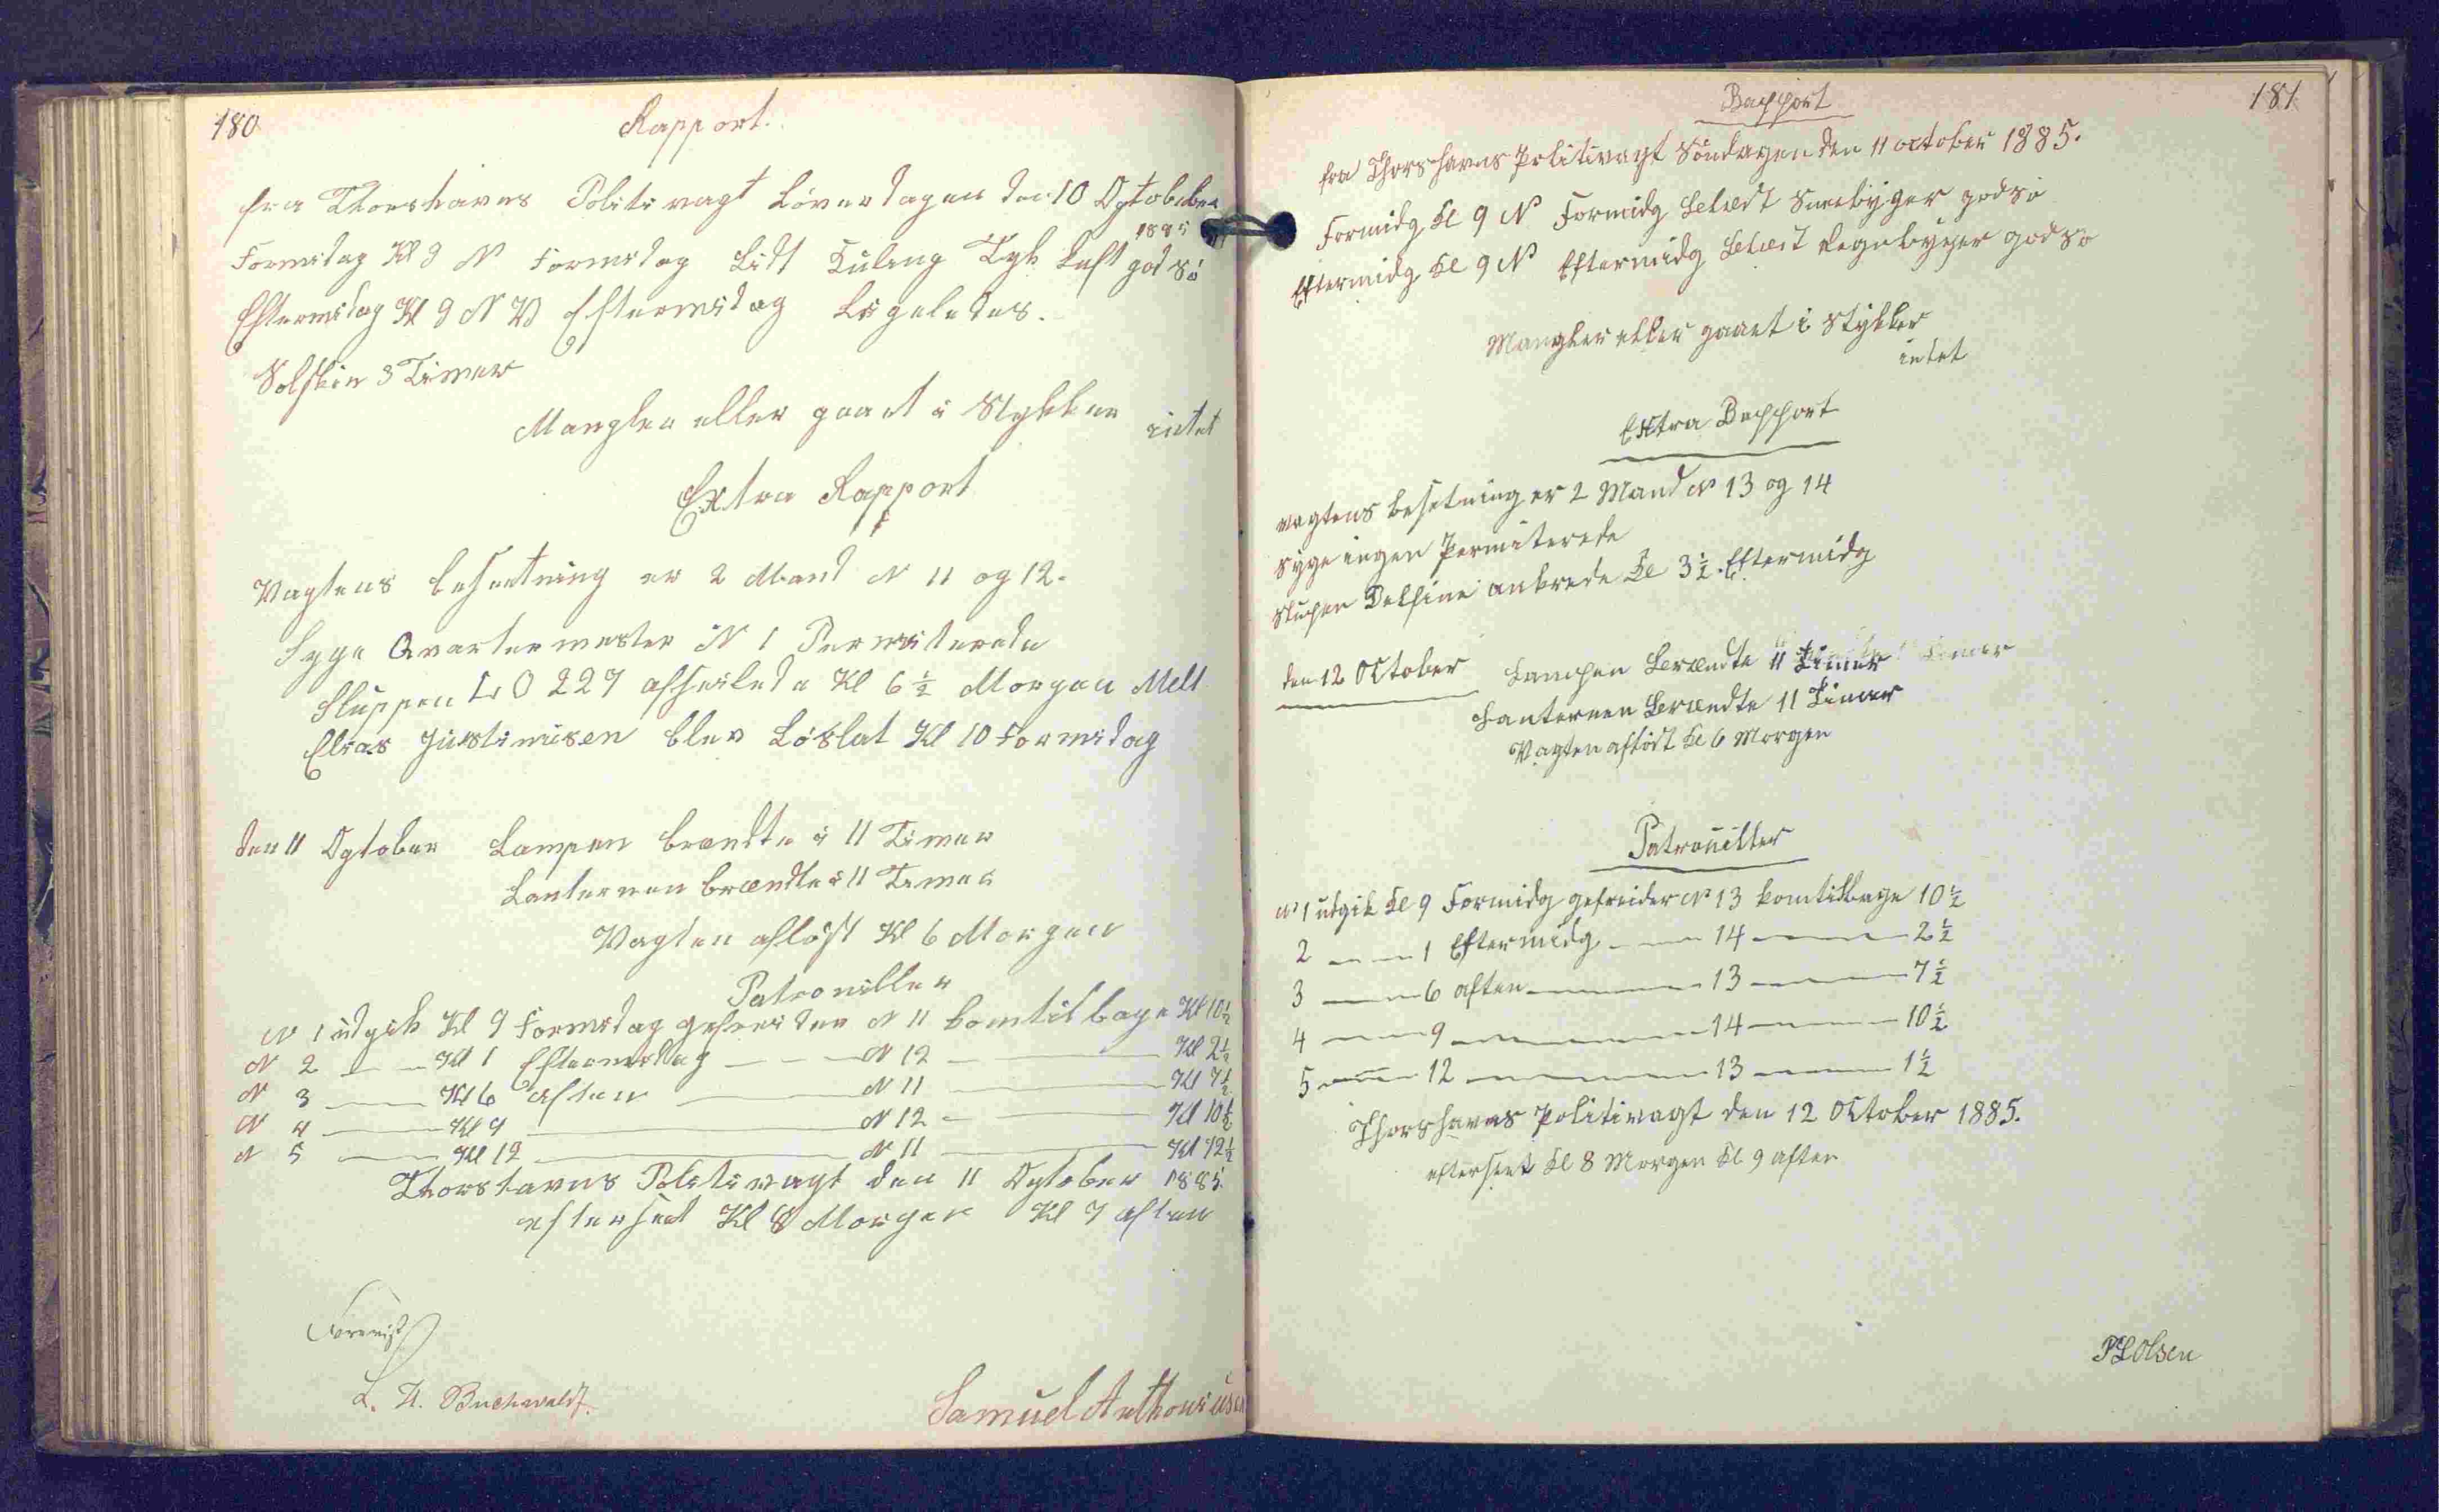 180
Rapport.
fra Thorshavns Politivagt Löverdagen den 10 Ogtober
1885
Formidag Kl 9 N Formidag Lidt Kuling Tyk Luft god Sö
Eftermidag Kl 9 N V Eftermidag Ligeledes.
Solskin 3 Timer
Mangler eller gaaet i Stykker intet
Extra Rapport
Vagtens besætning er 2 Mand N 11 og 12.
Syge Qvartermester N 1 Permiterede
Sluppen 227 afseilede Kl 6 ½ Morgen
Elias Justinusen blev Löslat Kl 10 Formidag
den 11 Ogtober Lampen brændte i 11 Timer
Lanternen brændte i 11 Timer
Vagten aflöst Kl 6 Morgen
Patrouiller
N 1 udgik Kl 9 Formidag gefreider N 11 komtilbage Kl 10½
N 2 — — Kl 1 Eftermidag — — N 12 — Kl 2½
N 3 — Kl 6 aften — N 11 — Kl 7½
N 4 — Kl 9 — N 12 — Kl 10½
N 5 — Kl 12 — N 11 — Kl 12½
Thorshavns Politivagt den 11 Ogtober 1885.
efterseet Kl 8 Morgen Kl 7 aften
Forevist
L. A. Buchwaldt.
Samuel Anthoniusen
181
Rapport
fra Thorshavns Politivagt Söndagen den 11 october 1885.
Formidg Kl 9 N Formidg Letæt Sneebyger god sö
Eftermidg Kl 9 N Eftermidg Letæt Regnbyger god sö
Mangler eller gaaet i stykker
intet
Extra Rapport
vagtens besetning er 2 Mand N 13 og 14
syge ingen Permiterede
slupen Delfine ankrede Kl 3½ Eftermidg
den 12 October Lampen Brændte 11 Timer
Lanternen Brændte 11 Timer
Vagten aflöst Kl 6 Morgen
Patrouiller
N 1 udgik Kl 9 Formidg gefreider N 13 komtilbage 10½
2 — 1 Eftermidg — 14 — 2½
3 — 6 aften — 13 — 7½
4 — 9 — 14 — 10½
5 — 12 — 13 — 1½
Thorshavns Politivagt den 12 October 1885.
efterseet Kl 8 Morgen Kl 9 aften
Olsen